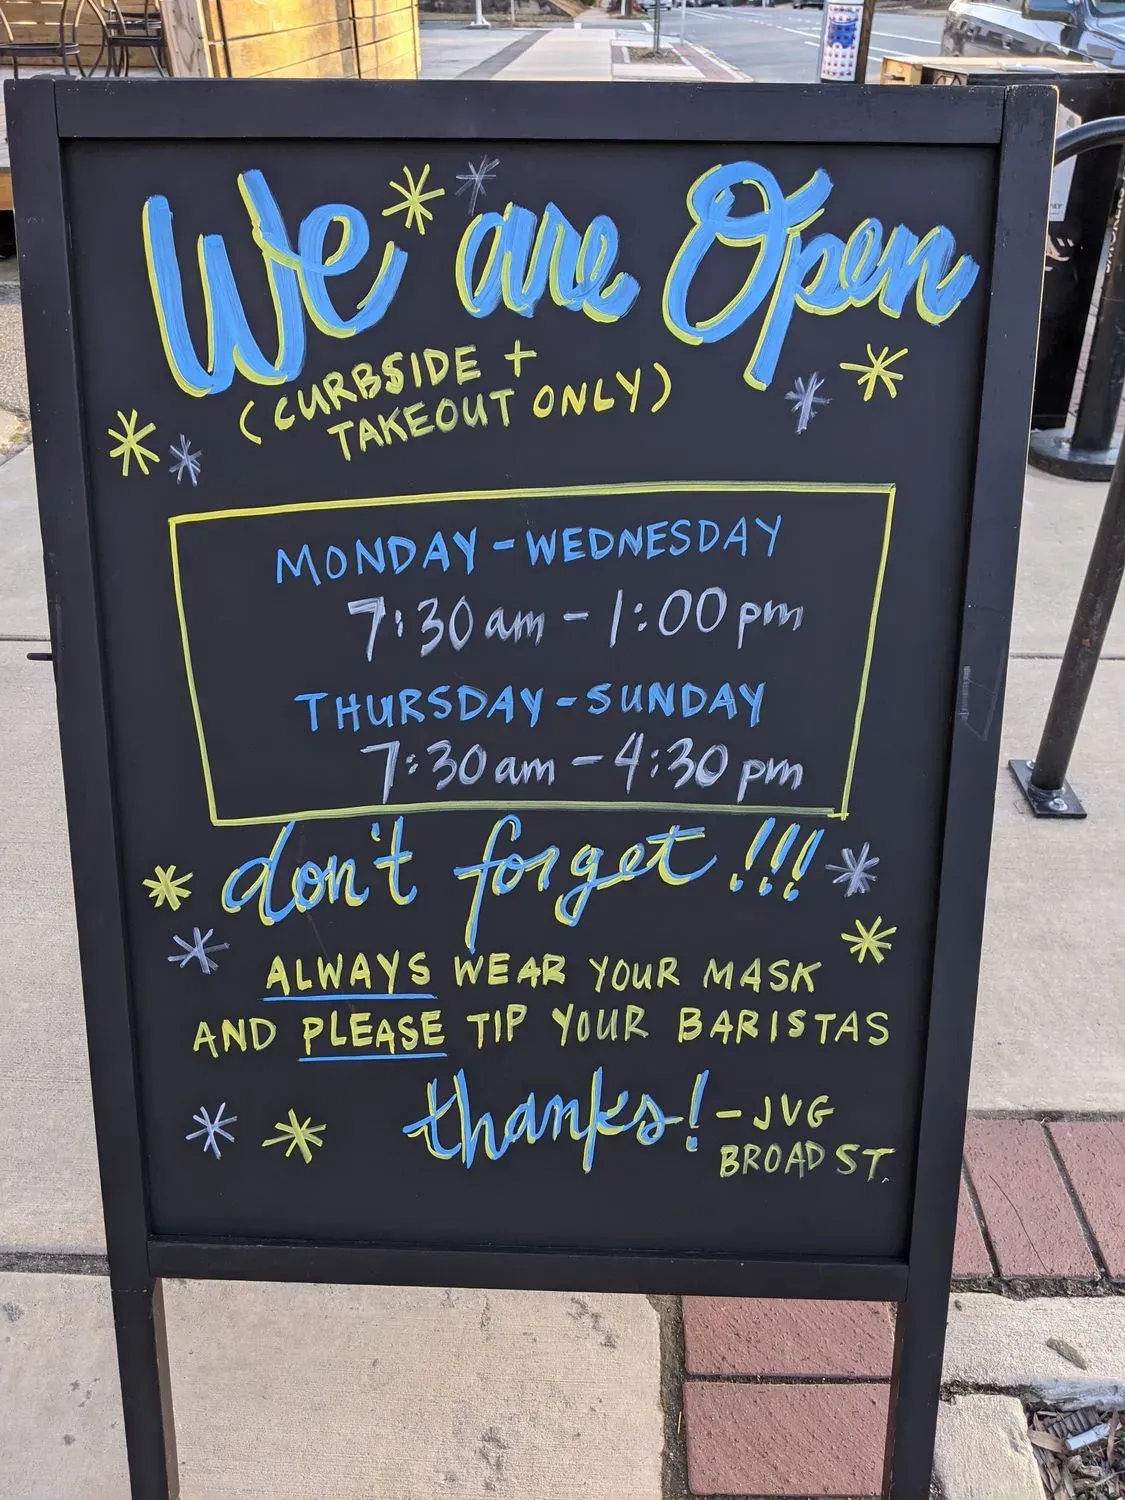 We are Open
(CURBSIDE +
TAKEOUT ONLY)
MONDAY - WEDNESDAY
7:30 am - 1:00 pm
THURSDAY - SUNDAY
7:30 am - 4:30 pm
don't forget!!!
ALWAYS WEAR YOUR MASK
AND PLEASE TIP YOUR BARISTAS
thanks! - JVG
BROAD ST.